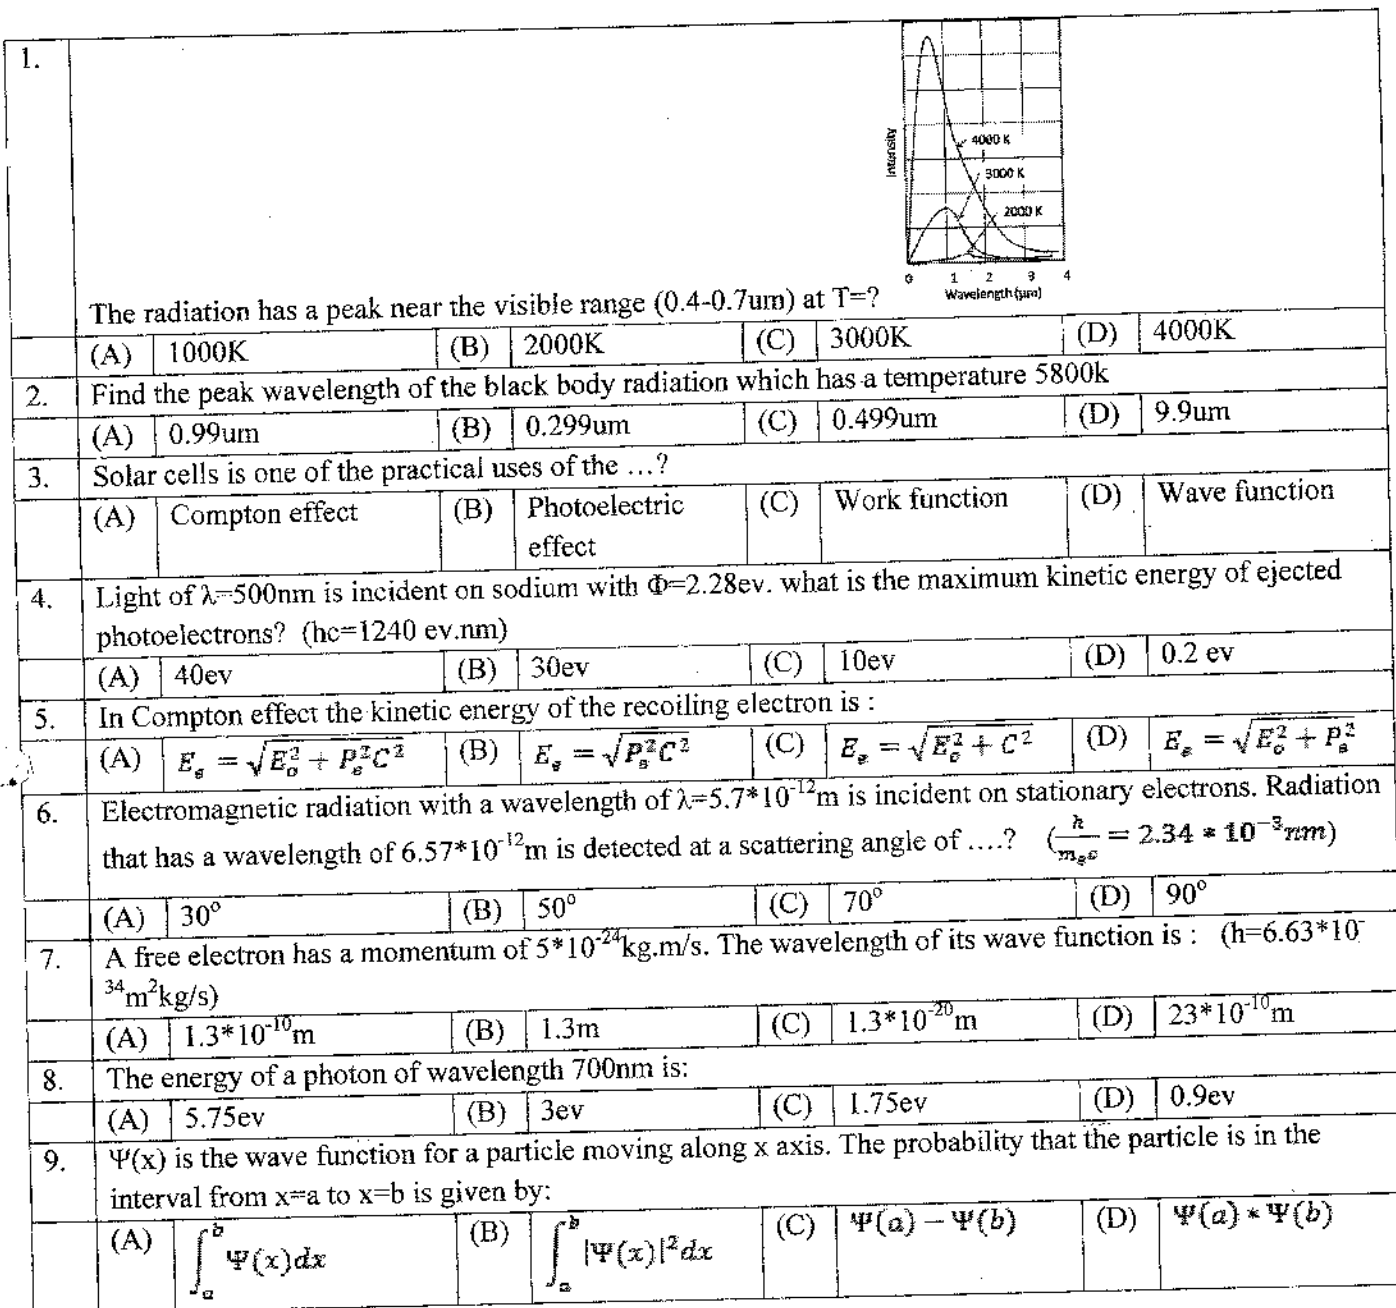 1.
Intensity
4000 K
3000 K
2000 K
0 1 2 3 4
Wavelength (µm)
The radiation has a peak near the visible range (0.4-0.7um) at T=?
(A) 1000K (B) 2000K (C) 3000K (D) 4000K
2. Find the peak wavelength of the black body radiation which has a temperature 5800k
(A) 0.99um (B) 0.299um (C) 0.499um (D) 9.9um
3. Solar cells is one of the practical uses of the …?
(A) Compton effect (B) Photoelectric effect (C) Work function (D) Wave function
4. Light of λ=500nm is incident on sodium with Φ=2.28ev. what is the maximum kinetic energy of ejected
photoelectrons? (hc=1240 ev.nm)
(A) 40ev (B) 30ev (C) 10ev (D) 0.2 ev
5. In Compton effect the kinetic energy of the recoiling electron is :
(A) E_e = √(E_o² + P_e²C²) (B) E_e = √(P_e²C²) (C) E_e = √(E_o² + C²) (D) E_e = √(E_o² + P_e²)
6. Electromagnetic radiation with a wavelength of λ=5.7*10⁻¹²m is incident on stationary electrons. Radiation
that has a wavelength of 6.57*10⁻¹²m is detected at a scattering angle of ….? (h/(m_e c) = 2.34 * 10⁻³nm)
(A) 30⁰ (B) 50⁰ (C) 70⁰ (D) 90⁰
7. A free electron has a momentum of 5*10⁻²⁴kg.m/s. The wavelength of its wave function is : (h=6.63*10⁻
³⁴m²kg/s)
(A) 1.3*10⁻¹⁰m (B) 1.3m (C) 1.3*10⁻²⁰m (D) 23*10⁻¹⁰m
8. The energy of a photon of wavelength 700nm is:
(A) 5.75ev (B) 3ev (C) 1.75ev (D) 0.9ev
9. Ψ(x) is the wave function for a particle moving along x axis. The probability that the particle is in the
interval from x=a to x=b is given by:
(A) ∫_a^b Ψ(x)dx (B) ∫_a^b |Ψ(x)|²dx (C) Ψ(a) − Ψ(b) (D) Ψ(a) * Ψ(b)